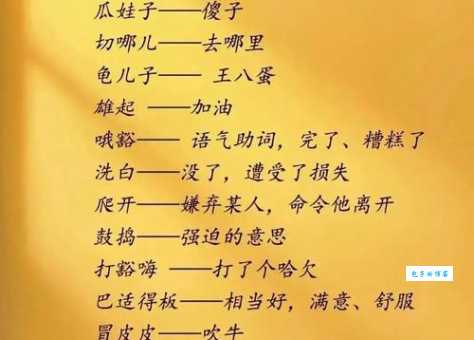 瓜娃子——傻子
切哪儿——去哪里
龟儿子—— 王八蛋
雄起 ——加油
哦豁—— 语气助词，完了、糟糕了
洗白——没了，遭受了损失
爬开——嫌弃某人，命令他离开
鼓捣——强迫的意思
打豁嗨 ——打了个哈欠
巴适得板——相当好，满意、舒服
冒皮皮——吹牛